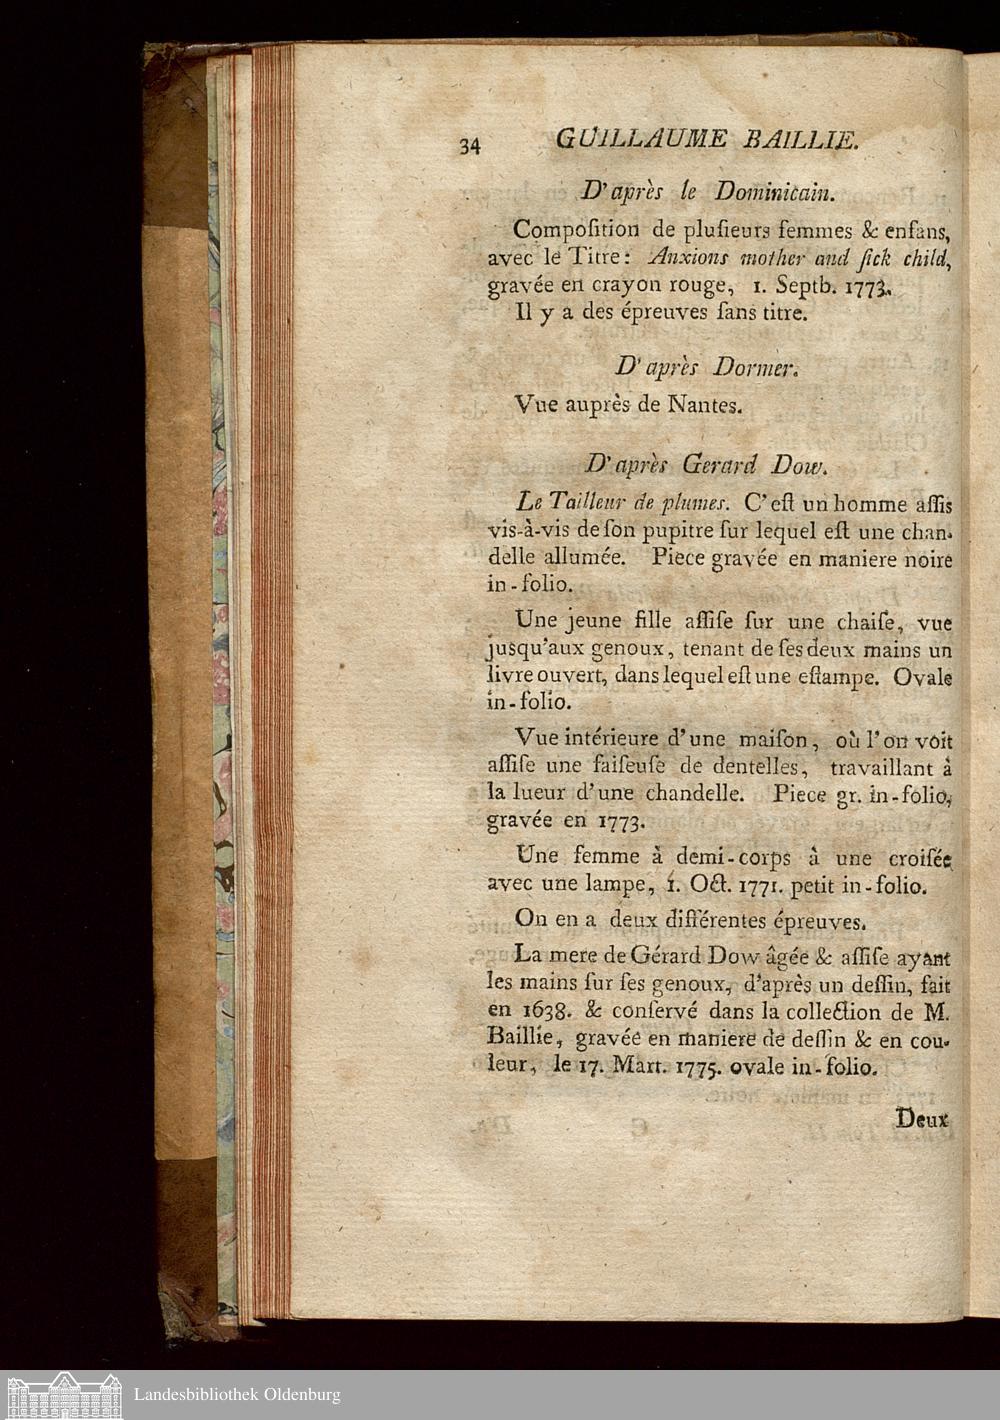 34 GUILLAUME BAILLIE.
D'après le Dominicain.
Compoſition de pluſieurs femmes & enfans,
avec le Titre: Anxions mother and ſick child,
gravée en crayon rouge, 1. Septb. 1773.
Il y a des épreuves ſans titre.
D'après Dormer.
Vue auprès de Nantes.
D'après Gerard Dow.
Le Tailleur de plumes. C'eſt un homme aſſis
vis-à-vis de ſon pupitre ſur lequel eſt une chan-
delle allumée. Piece gravée en maniere noire
in-folio.
Une jeune fille aſſiſe ſur une chaiſe, vue
jusqu'aux genoux, tenant de ſes deux mains un
livre ouvert, dans lequel eſt une eſtampe. Ovale
in-folio.
Vue intérieure d'une maiſon, où l'on voit
aſſiſe une faiſeuſe de dentelles, travaillant à
la lueur d'une chandelle. Piece gr. in-folio,
gravée en 1773.
Une femme à demi-corps à une croiſée
avec une lampe, 1. Oct. 1771. petit in-folio.
On en a deux différentes épreuves.
La mere de Gérard Dow âgée & aſſiſe ayant
les mains ſur ſes genoux, d'après un deſſin, fait
en 1638. & conſervé dans la collection de M.
Baillie, gravée en maniere de deſſin & en cou-
leur, le 17. Mart. 1775. ovale in-folio.
Deux
Landesbibliothek Oldenburg